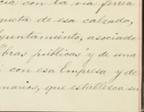 cia con la via ferrea
de esa calzada,
yuntamiento, asociado
Obras públicas y de una
con esa Empresa y de
marios, que establezca su